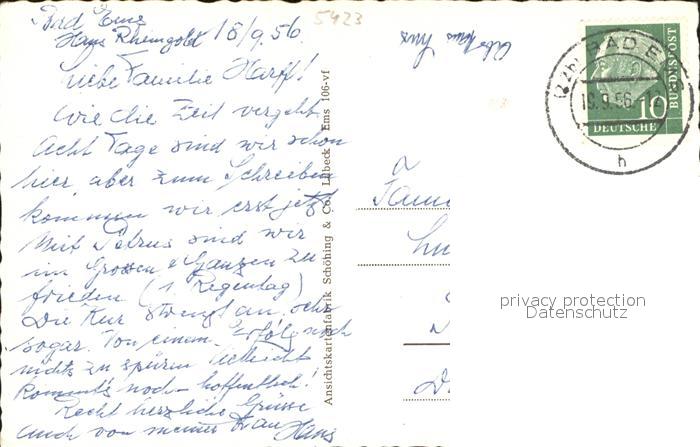 Bad Ems
Haus Rheingold 18/9.56
5423
Liebe Familie Harff!
Wie die Zeit vergeht,
Acht Tage sind wir schon
hier, aber zum Schreiben
kommen wir erst jetzt
Mit Petrus sind wir
im Grossen & Ganzen zu
frieden (1 Regentag)
Die Kur strengt an, sehr
sogar. Von einem Erfolg noch
nichts zu spüren. Vielleicht
kommt's noch - hoffentlich!
Recht herzliche Grüsse
auch von meiner Frau Hans
Ansichtskartenfabrik Schöning & Co., Lübeck
Ems 106-vf
(22b) BAD E
18.9.56.-1
h
10
DEUTSCHE
BUNDESPOST
Fam
privacy protection
Datenschutz